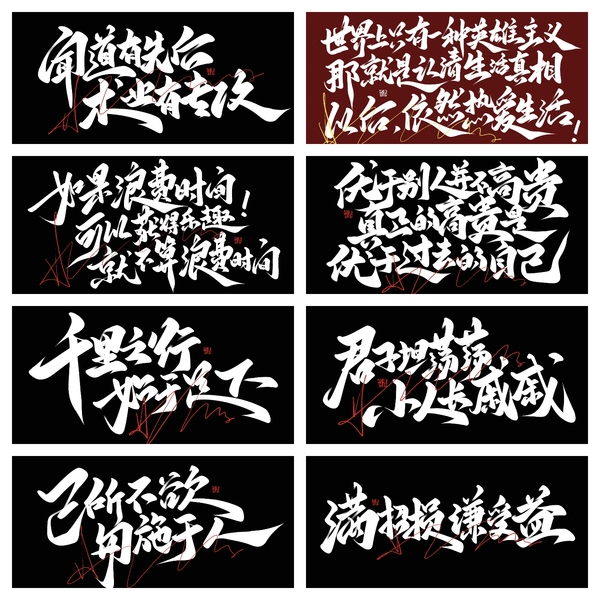 闻道有先后
术业有专攻
世界上只有一种英雄主义
那就是认清生活真相
以后,依然热爱生活!
如果浪费时间
可以获得乐趣!
就不算浪费时间
优于别人并不高贵
真正的高贵是
优于过去的自己
千里之行
始于足下
君子坦荡荡
小人长戚戚
己所不欲
勿施于人
满招损 谦受益